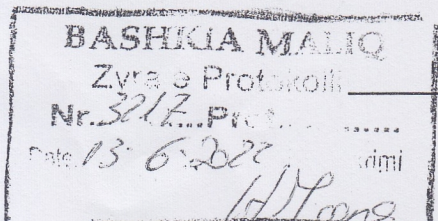 BASHKIA MALIQ
Zyra e Protokollit
Nr. 3217 Prot.
Date 13.6.2022